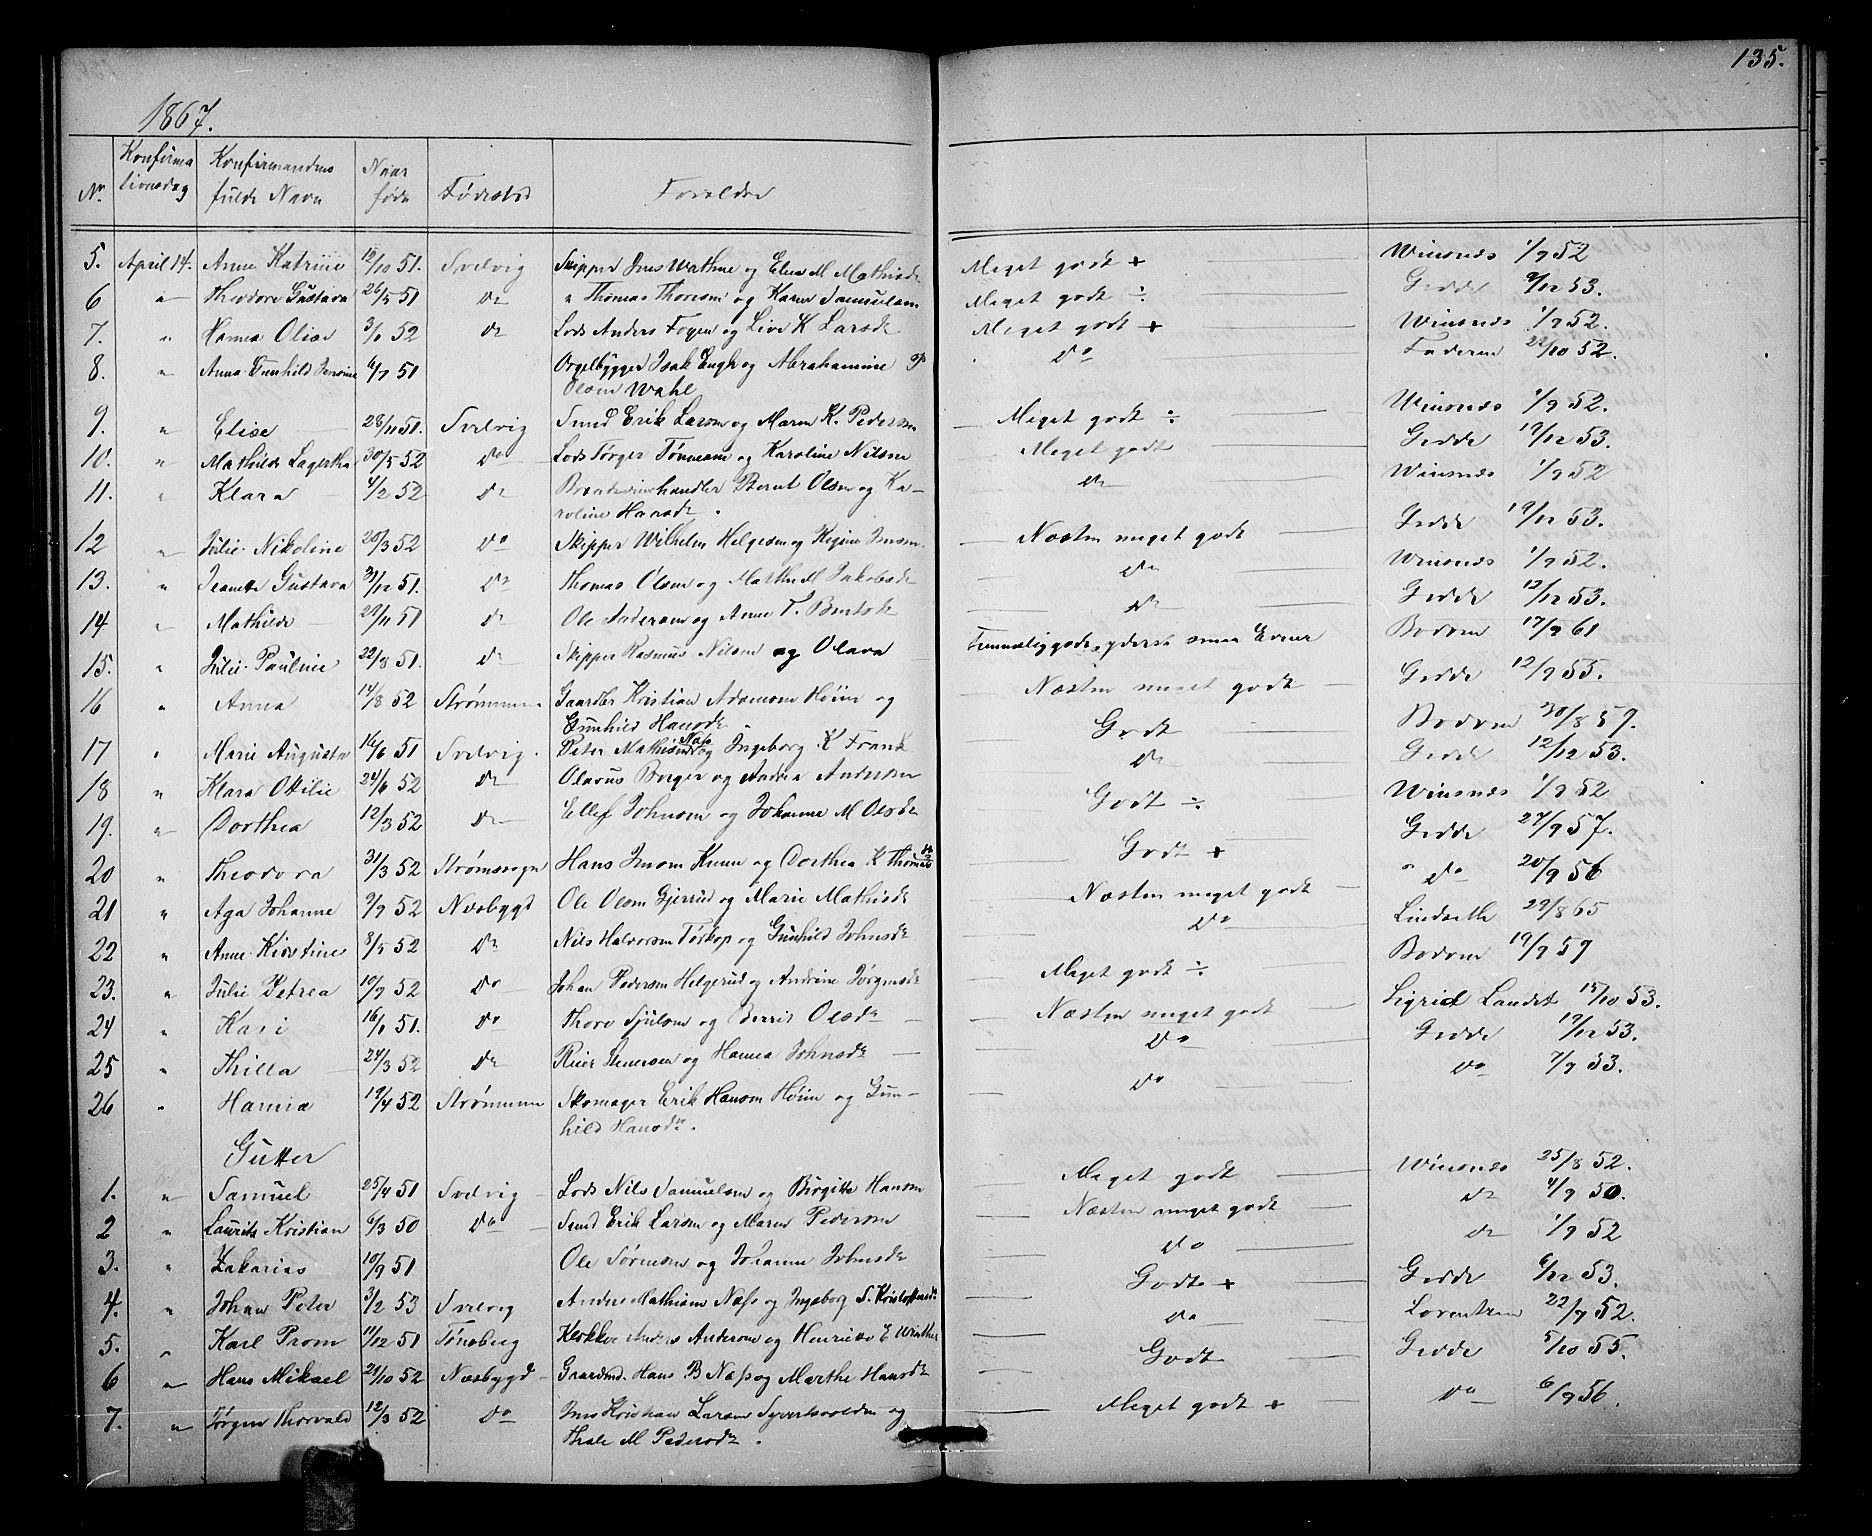 135.
1867.
No. Konfirmationsdag Konfirmandens fulde Navn Naar født Fødested Forældre
5. April 14. Anne Katrine 12/10 51. Svelvig Skipper Jens Wathne og Elen M Mathisdr Meget godt + Winsnes 1/9 52
6 " Theodore Gustava 26/5 51 Do " Thomas Thoresen og Karen Samuelsen Meget godt ÷ Gedde 9/12 53.
7. " Hanna Olise 3/1 52 Do Lods Anders Fogen og Live K Larsdr Meget godt + Winsnes 1/9 52.
8. " Anna Gunhild 6/7 51 Orgelbygger Isak Engh og Abrahamine
Olsen Wahl Do Faderen 22/10 52.
9. " Elise 28/11 51. Svelvig Smed Erik Larsen og Maren K. Pedersen Meget godt ÷ Winsnes 1/9 52.
10. " Mathilde Lagertha 30/5 52 Do Lods Jørger Tønnesen og Karoline Nilsen Meget godt Gedde 19/12 53.
11. " Klara 4/2 52 Do Brændevinshandler Bernt Olsen og Ka-
roline Hansdr. Do Winsnes 1/9 52
12 " Julie Nikoline 20/3 52 Do Skipper Wilhelm Helgesen og Regine Jensen Næsten meget godt Gedde 19/12 53.
13. " Jeanette Gustava 31/12 51. Do Thomas Olsen og Marthe M Jakobsdr Do Winsnes 1/9 52.
14 " Mathilde 29/11 51 Do Ole Andersen og Anne T. Berntsdr Do Gedde 12/12 53.
15. " Julie Pauline 22/8 51. Do Skipper Rasmus Nilsen og Olava Temmelig godt, yderst smaa Evner Bodom 17/9 61
16 " Anna 14/8 52 Strømmen Gaardbr Kristian Adamsen Høiin og
Gunhild Hansdr. Næsten meget godt Gedde 12/9 55.
17 " Marie Augusta 16/6 51 Svelvig. Peter Mathisen Næs og Ingeborg K Frank Godt Bodom 30/8 59.
18 " Klara Ottilie 24/6 52 Do Olavus Berger og Andrea Andersen Do Gedde 12/12 53.
19. " Dorthea 12/3 52 Do Ellef Johnsen og Johanne M Olsdr Godt ÷ Winsnes 1/9 52
20 " Theodora 31/3 52 Strømssogn Hans Jensen Kinn og Dorthea K Thomasdr Godt + Gedde 27/9 57.
21 " Aga Johanne 9/9 52 Næsbygd Ole Olsen Gjerrud og Marie Mathisdr Næsten meget godt " Do 20/9 56
22 " Anne Kirstine 8/5 52 Do Nils Halvorsen Tørkop og Gunhild Johnsdr Do Lindseth 29/8 65
23. " Julie Petrea 10/9 52 Do Johan Pedersen Helgerud og Andrine Jørgensdr Meget godt ÷ Bodom 19/9 59
24 " Kari 16/1 51. Do Thore Sjulsen og Berrit Olsdr Næsten meget godt Sigrid Landet 15/10 53.
25 " Thilla 24/3 52 Do Reier Stenersen og Hanna Johnsdr Do Gedde 19/12 53.
26 " Hanna 19/4 52 Strømmen Skomager Erik Hansen Høiin og Gun-
hild Hansdr. Do Do 7/9 53.
Gutter
1. " Samuel 25/4 51 Svelvig Lods Nils Samuelsen og Birgitte Hansen Meget godt Winsnes 25/8 52.
2 " Laurits Kristian 6/3 50 Do Smed Erik Larsen og Maren Pedersen Næsten meget godt Do 4/9 50.
3. " Zakarias 10/9 51 Ole Sørensen og Johanne Johnsdr Do Do 1/9 52
4. " Johan Peter 3/2 53 Svelvig Anders Mathisen Næss og Ingeborg S. Kristoffersdr Godt + Gedde 6/12 53.
5. " Karl Prom 11/12 51 Tønsberg Klokker Anders Andersen og Henriette E Winther Do Lorentzen 22/9 52.
6 " Hans Mikael 21/10 52 Næsbygd Gaardmd. Hans B Næss og Marthe Hansdr Godt Gedde 5/10 55.
7. " Jørgen Thorvald 12/3 52 Do Jens Kristian Larsen Syvertsvolden og
Thale M Pedersdr. Meget godt + Do 6/9 56.